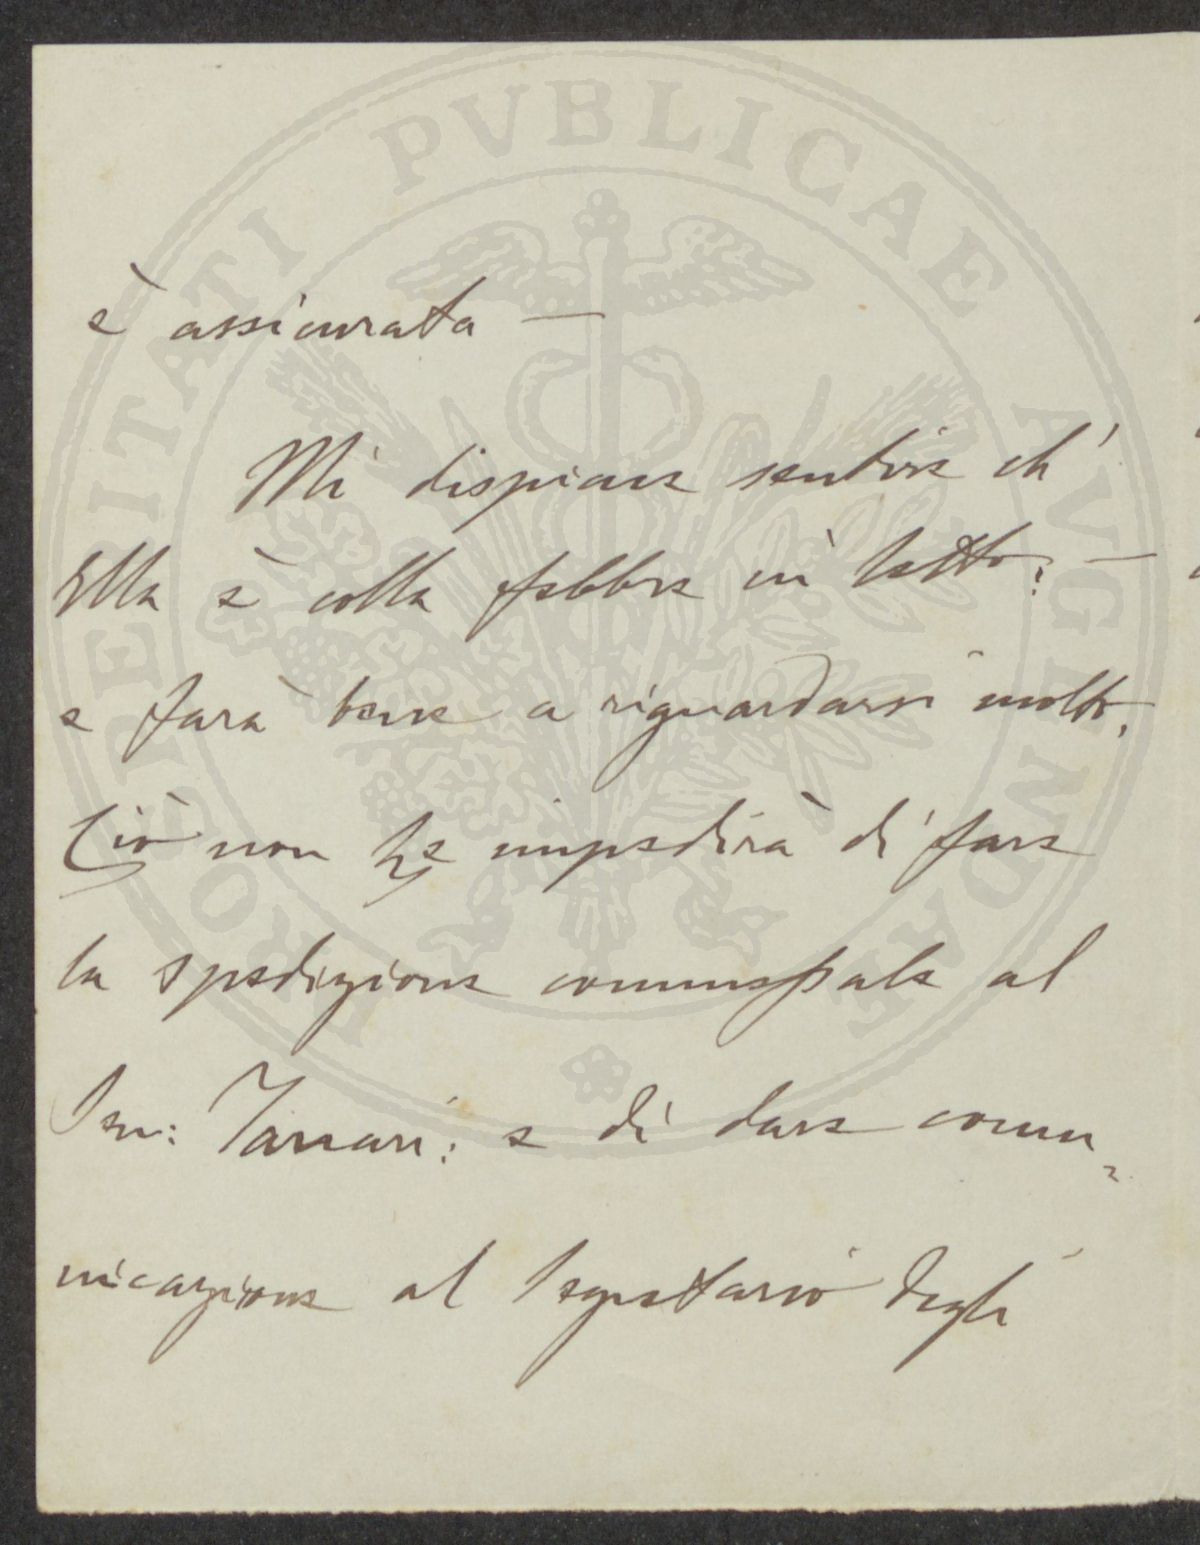 PROSPERITATI PVBLICAE AVGENDAE
è assicurata —
Mi dispiace sentire ch'
Ella è colla febbre in letto: —
e farà bene a riguardarsi molto.
Ciò non Le impedirà di fare
la spedizione al
Sen: Tanari: e di dare comu=
nicazione al Segretario degli